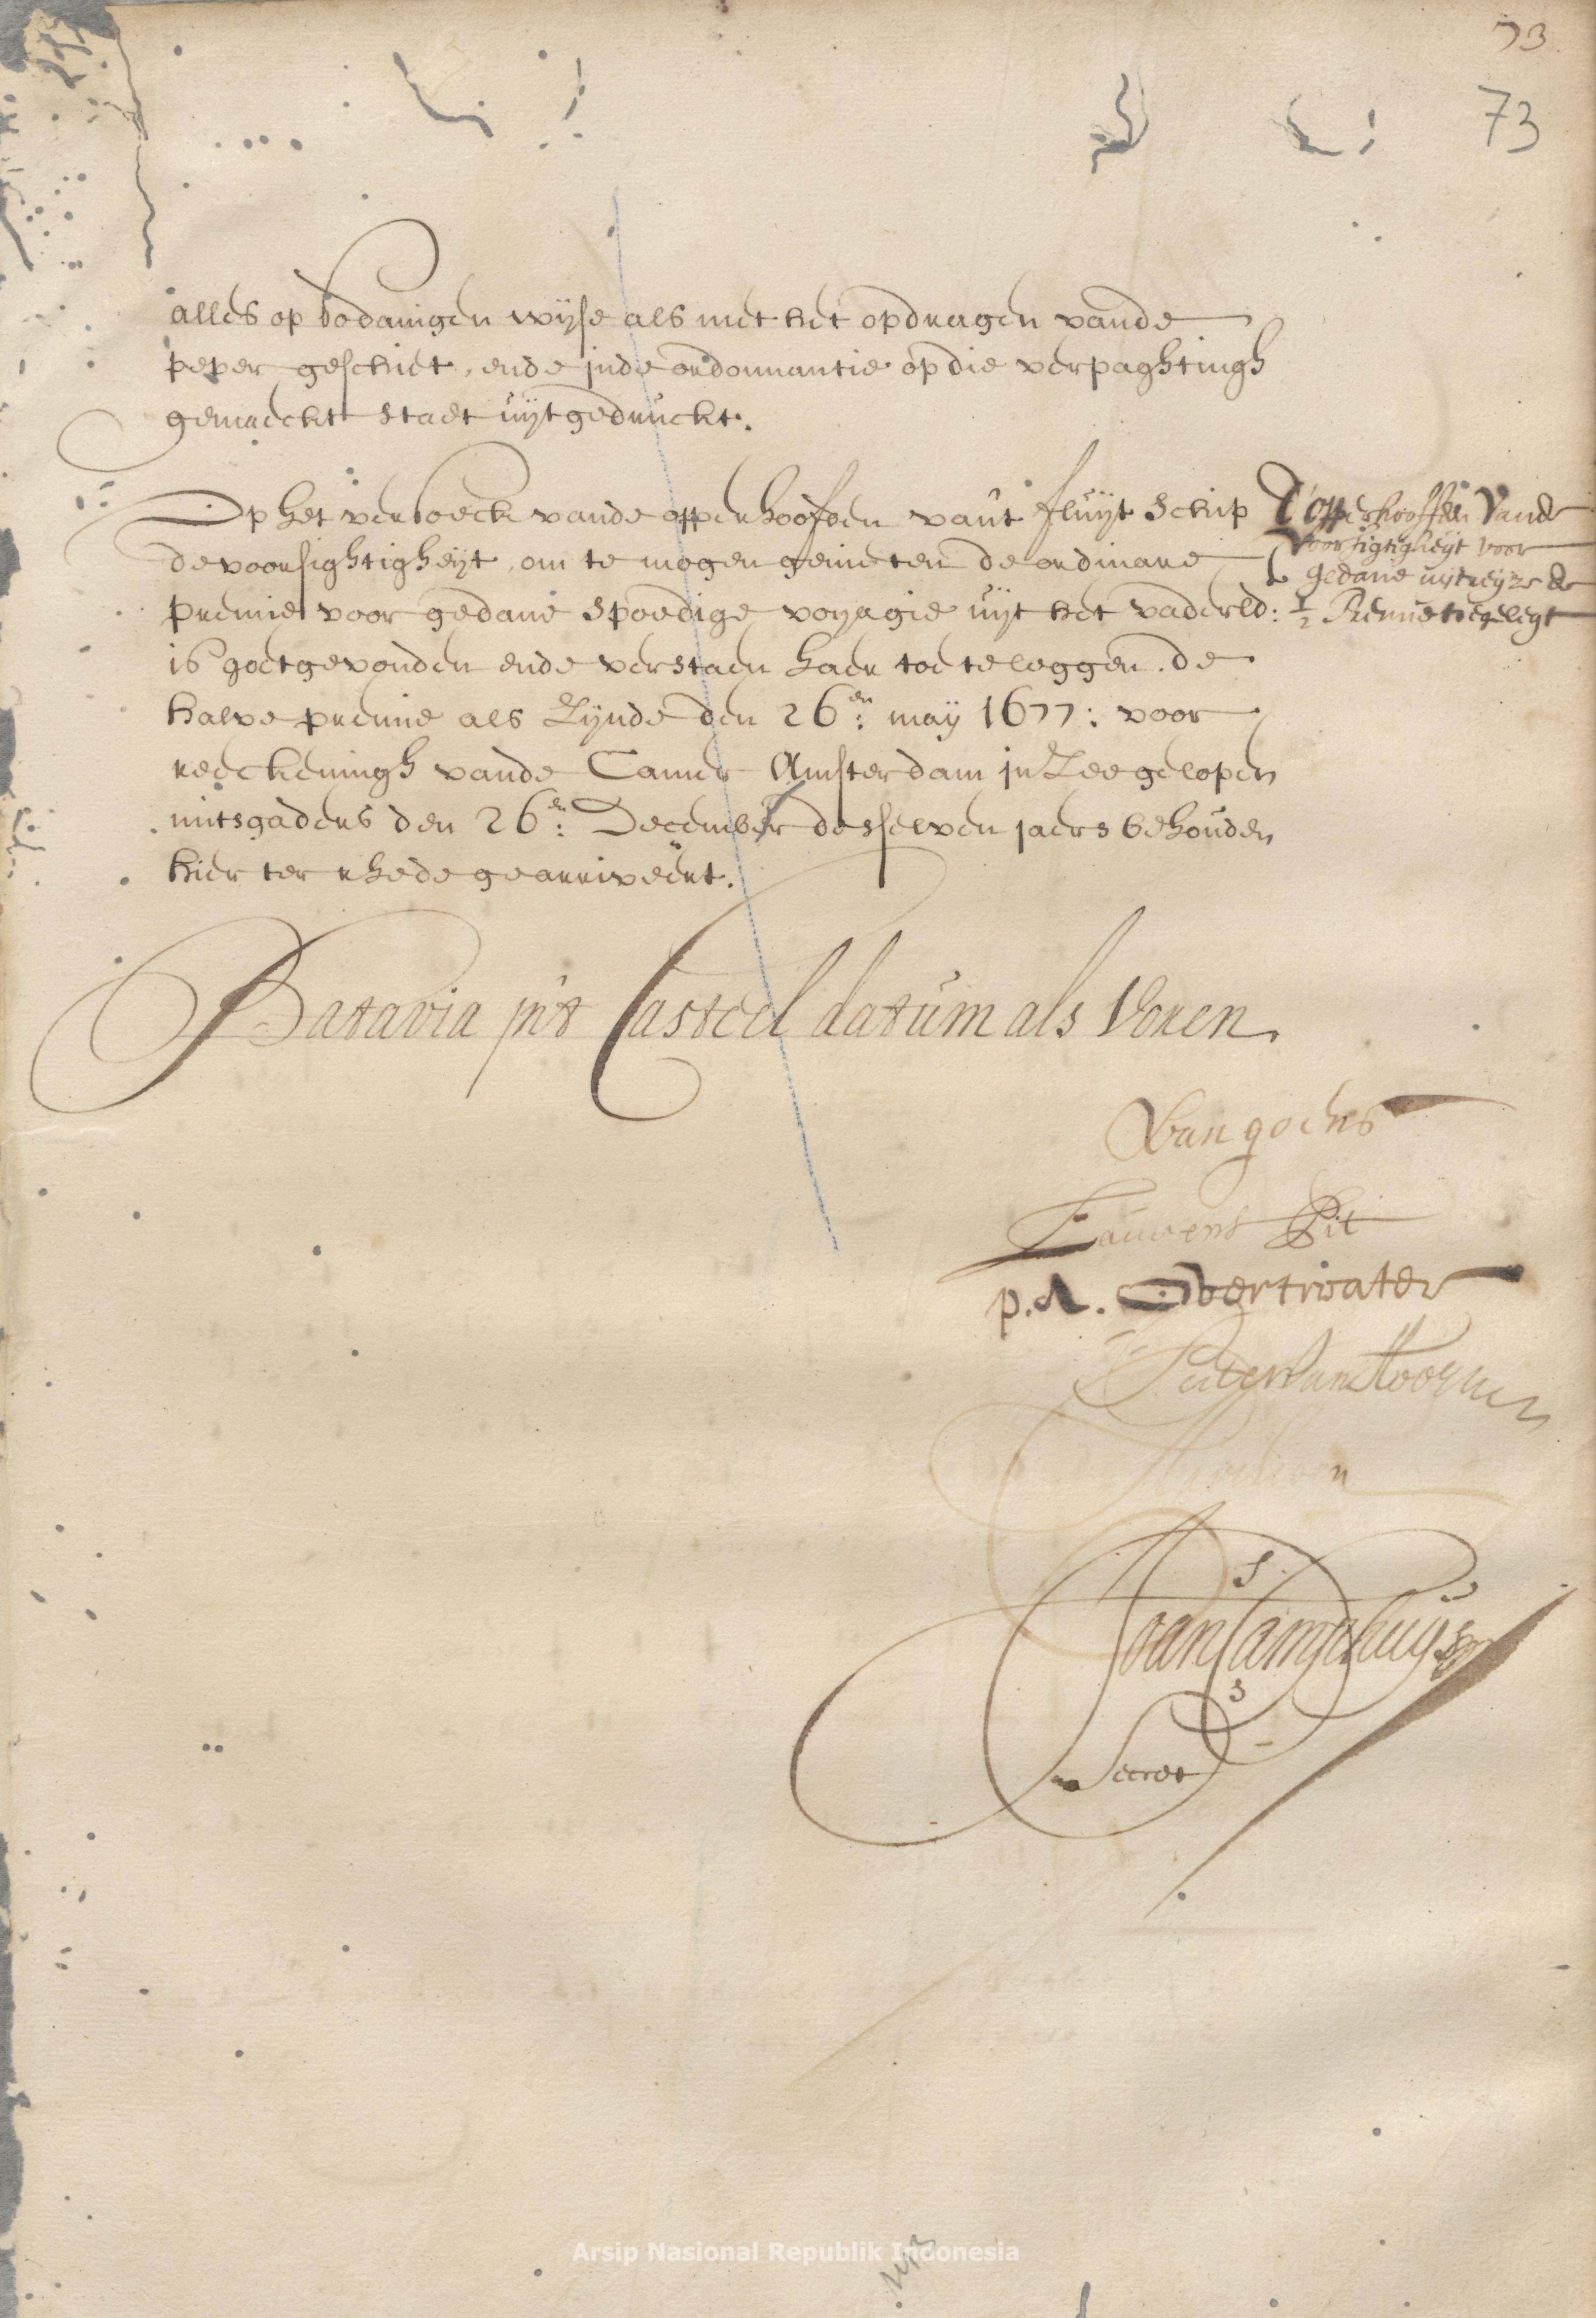 73
73
alles op sodanigen wijse als met het opdragen vande
peper geschiet, ende inde ordonnantie op die verpaghtingh
gemaeckt staet uijtgedruckt.
Op het versoeck vande opperhoofden van't fluijt schip
de voorsightigheijt, om te mogen genieten de ordinare
premie voor gedane spoedige voyagie uijt het vaderld:
is goetgevonden ende verstaen haer toe te leggen de
halve premie als zijnde den 26en: maij 1677: voor
reeckeningh vande Camer Amsterdam in Zee gelopen
mitsgaders den 26en: December desselven jaers behouden
hier ter rhede gearriveert.
D'opperhoofden vande
voorsigtigheyt voor
gedane uytreyze de
1/2 Premie toegelegt
Batavia in't Casteel datum als Voren.
Van goens
Lauwens Pit
p. A. Overtwater
Pieter van Hoorn
Joan Camphuijs
Secret
Arsip Nasional Republik Indonesia